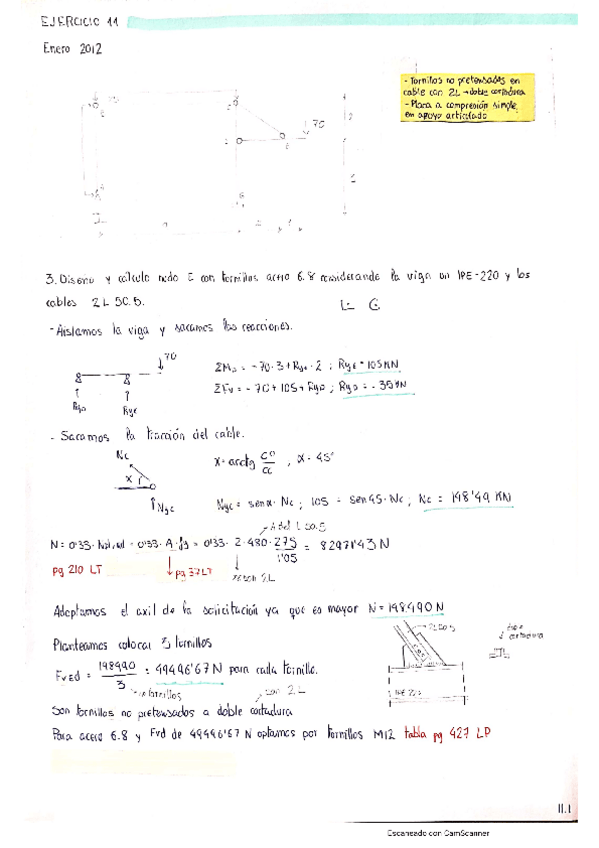 EJERCICIO 11
Enero 2012
- Tornillos no pretensados en
cable con 2L → doble cortadura
- Placa a compresión simple
en apoyo articulado
70
3. Diseño y cálculo nudo E con tornillos acero 6.8 considerando la viga un IPE-220 y los
cables 2L 50.5.
- Aislamos la viga y sacamos las reacciones.
70
ΣM = -70·3 + Rye·2 ; Rye = 105 KN
ΣFv = -70 + 105 + Ryd ; Ryd = -35 KN
Ryd
Rye
- Sacamos la tracción del cable.
Nc
α = arctg , α = 45°
α
Nyc
Nyc = senα · Nc ; 105 = sen45 · Nc ; Nc = 148'49 KN
A del L 50.5
N = 0'33 · = 0'33 · A · fy = 0'33 · 2 · 480 · 275/1'05 = 82971'43 N
pg 210 LT
pg 37 LT
son 2L
Adoptamos el axil de la solicitación ya que es mayor N = 148490 N
Planteamos colocar 3 tornillos
2L 50.5
cortadura
FvEd = 148490/3 = 49496'67 N para cada tornillo.
nº tornillos
con 2L
IPE 220
Son tornillos no pretensados a doble cortadura
Para acero 6.8 y Fvd de 49496'67 N optamos por tornillos M12 tabla pg 427 LP
11.1
Escaneado con CamScanner